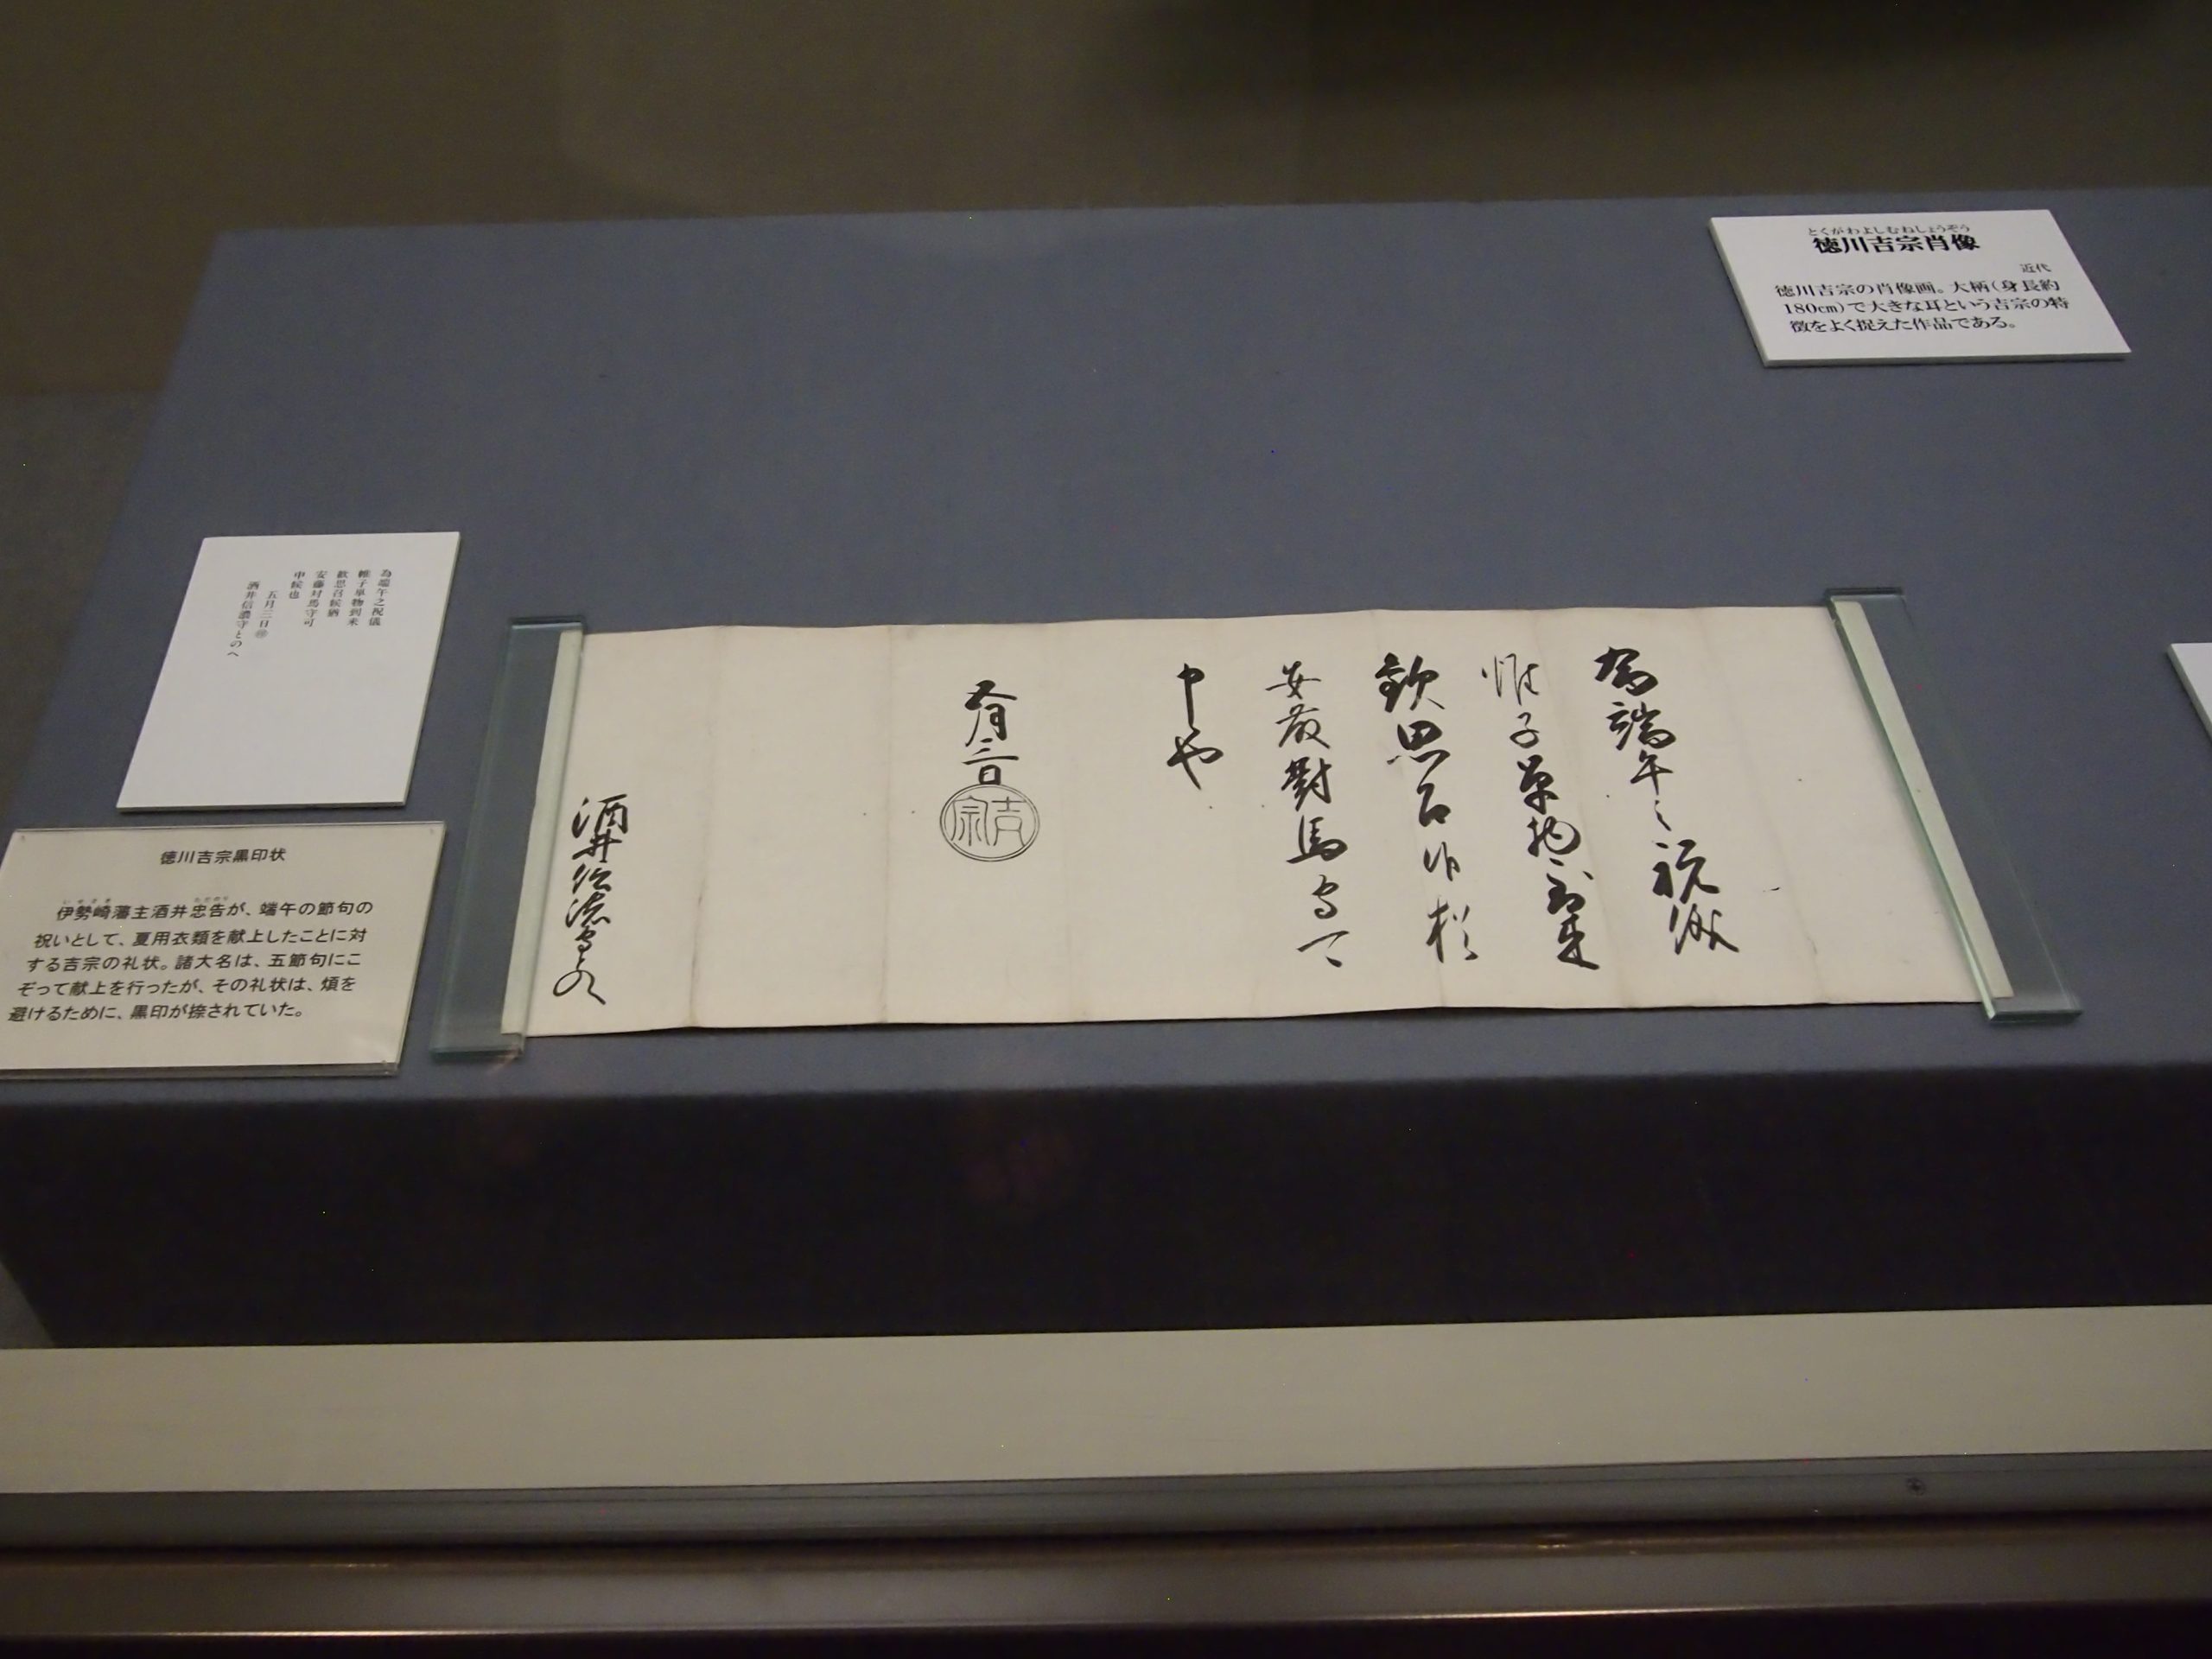 とくがわよしむねしょうぞう
徳川吉宗肖像
近代
徳川吉宗の肖像画。大柄(身長約
180cm)で大きな耳という吉宗の特
徴をよく捉えた作品である。
為端午之祝儀
帷子單物到来
歓思召候猶
安藤對馬守可
申也
五月三日
吉宗
酒井信濃守とのへ
為端午之祝儀
帷子単物到来
歓思召候猶
安藤対馬守可
申候也
五月三日㊞
酒井信濃守とのへ
徳川吉宗黒印状
伊勢崎藩主酒井忠告が、端午の節句の
祝いとして、夏用衣類を献上したことに対
する吉宗の礼状。諸大名は、五節句にこ
ぞって献上を行ったが、その礼状は、煩を
避けるために、黒印が捺されていた。